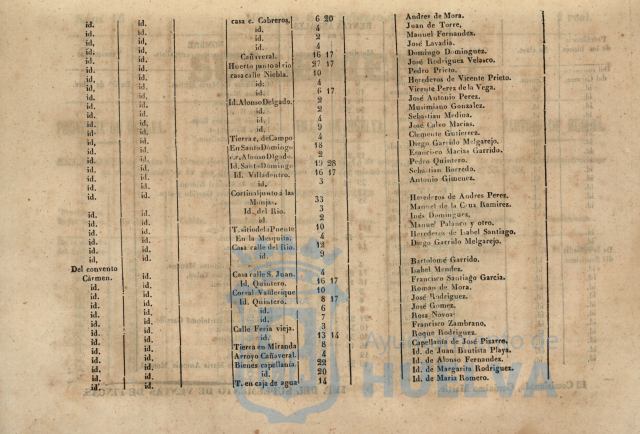 id. id. casa c. Cabreros, 6 20 Andres de Mora.
id. id. id. 4 Juan de Torre,
id. id. id. 2 Manuel Fernandez.
id. id. id. 4 José Lavadia.
id. id. Cañaveral. 16 17 Domingo Dominguez.
id. id. Huerto junto al rio 27 17 José Rodriguez Velasco.
id. id. casa calle Niebla. 10 Pedro Prieto.
id. id. id. 4 Herederos de Vicente Prieto.
id. id. id. 6 17 Vicente Perez de la Vega.
id. id. Id. Alonso Delgado. 2 José Antonio Perez.
id. id. id. 2 Musimiano Gonzalez.
id. id. id. 4 Sebastian Medina.
id. id. id. 9 José Calvo Macias.
id. id. Tierra e, de Campo 4 Clemente Gutierrez.
id. id. En Santo Domingo 18 Diego Garrido Melgarejo.
id. id. Alonso Dlgado. 2 Francisco Macias Garrido.
id. id. Id. Santo Domingo 19 28 Pedro Quintero.
id. id. Id. Villadentro. 16 17 Sebastian Borredo.
id. id. id. 3 Antonio Gimenez.
Cortinal junto á las
Monjas. 33 Herederos de Andres Perez.
id. id. Id. del Rio. 3 Manuel de la Cruz Ramirez.
id. id. id. 2 Inés Dominguez.
id. id. T. sitio de la Puente 10 Manuel Palanco y otro.
id. id. En la Mezquita. 4 Herederos de Isabel Santiago,
id. id. Casa calle del Rio. 12 Diego Garrido Melgarejo.
id. id. id. 9
Bartolomé Garrido.
Del convento
Cármen. id. Casa calle S. Juan. 4 Isabel Mendez.
id. id. Id. Quintero. 16 17 Francisco Santiago Garcia.
id. id. Corral Valderique 10 Roman de Mora.
id. id. Id. Quintero. 8 17 José Rodriguez.
id. id. id. 6 José Gomez.
id. id. id. 7 Rosa Novoa
id. id. Calle Feria vieja. 3 Francisco Zambrano,
id. id. id. 13 14 Roque Rodriguez.
id. id. Tierra en Miranda 8 Capellanía de José Pizarro,
id. id. Arroyo Cañaveral. 4 Id. de Juan Bautista Playa.
id. id. Bienes capellanía. 22 Id. de Alonso Fernandez.
id. id. id. 20 Id. de Margarita Rodriguez.
id. id. T. en caja de agua 14 Id. de Maria Romero.
Ayuntamiento de
HUELVA